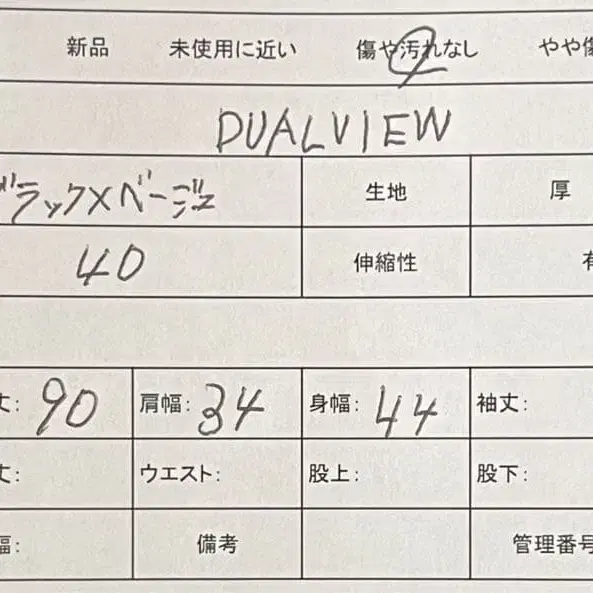 新品 未使用に近い 傷や汚れなし やや傷
DUALVIEW
ブラック×ベージュ 生地 厚
40 伸縮性 有
丈: 90 肩幅: 34 身幅: 44 袖丈:
丈: ウエスト: 股上: 股下:
幅: 備考 管理番号